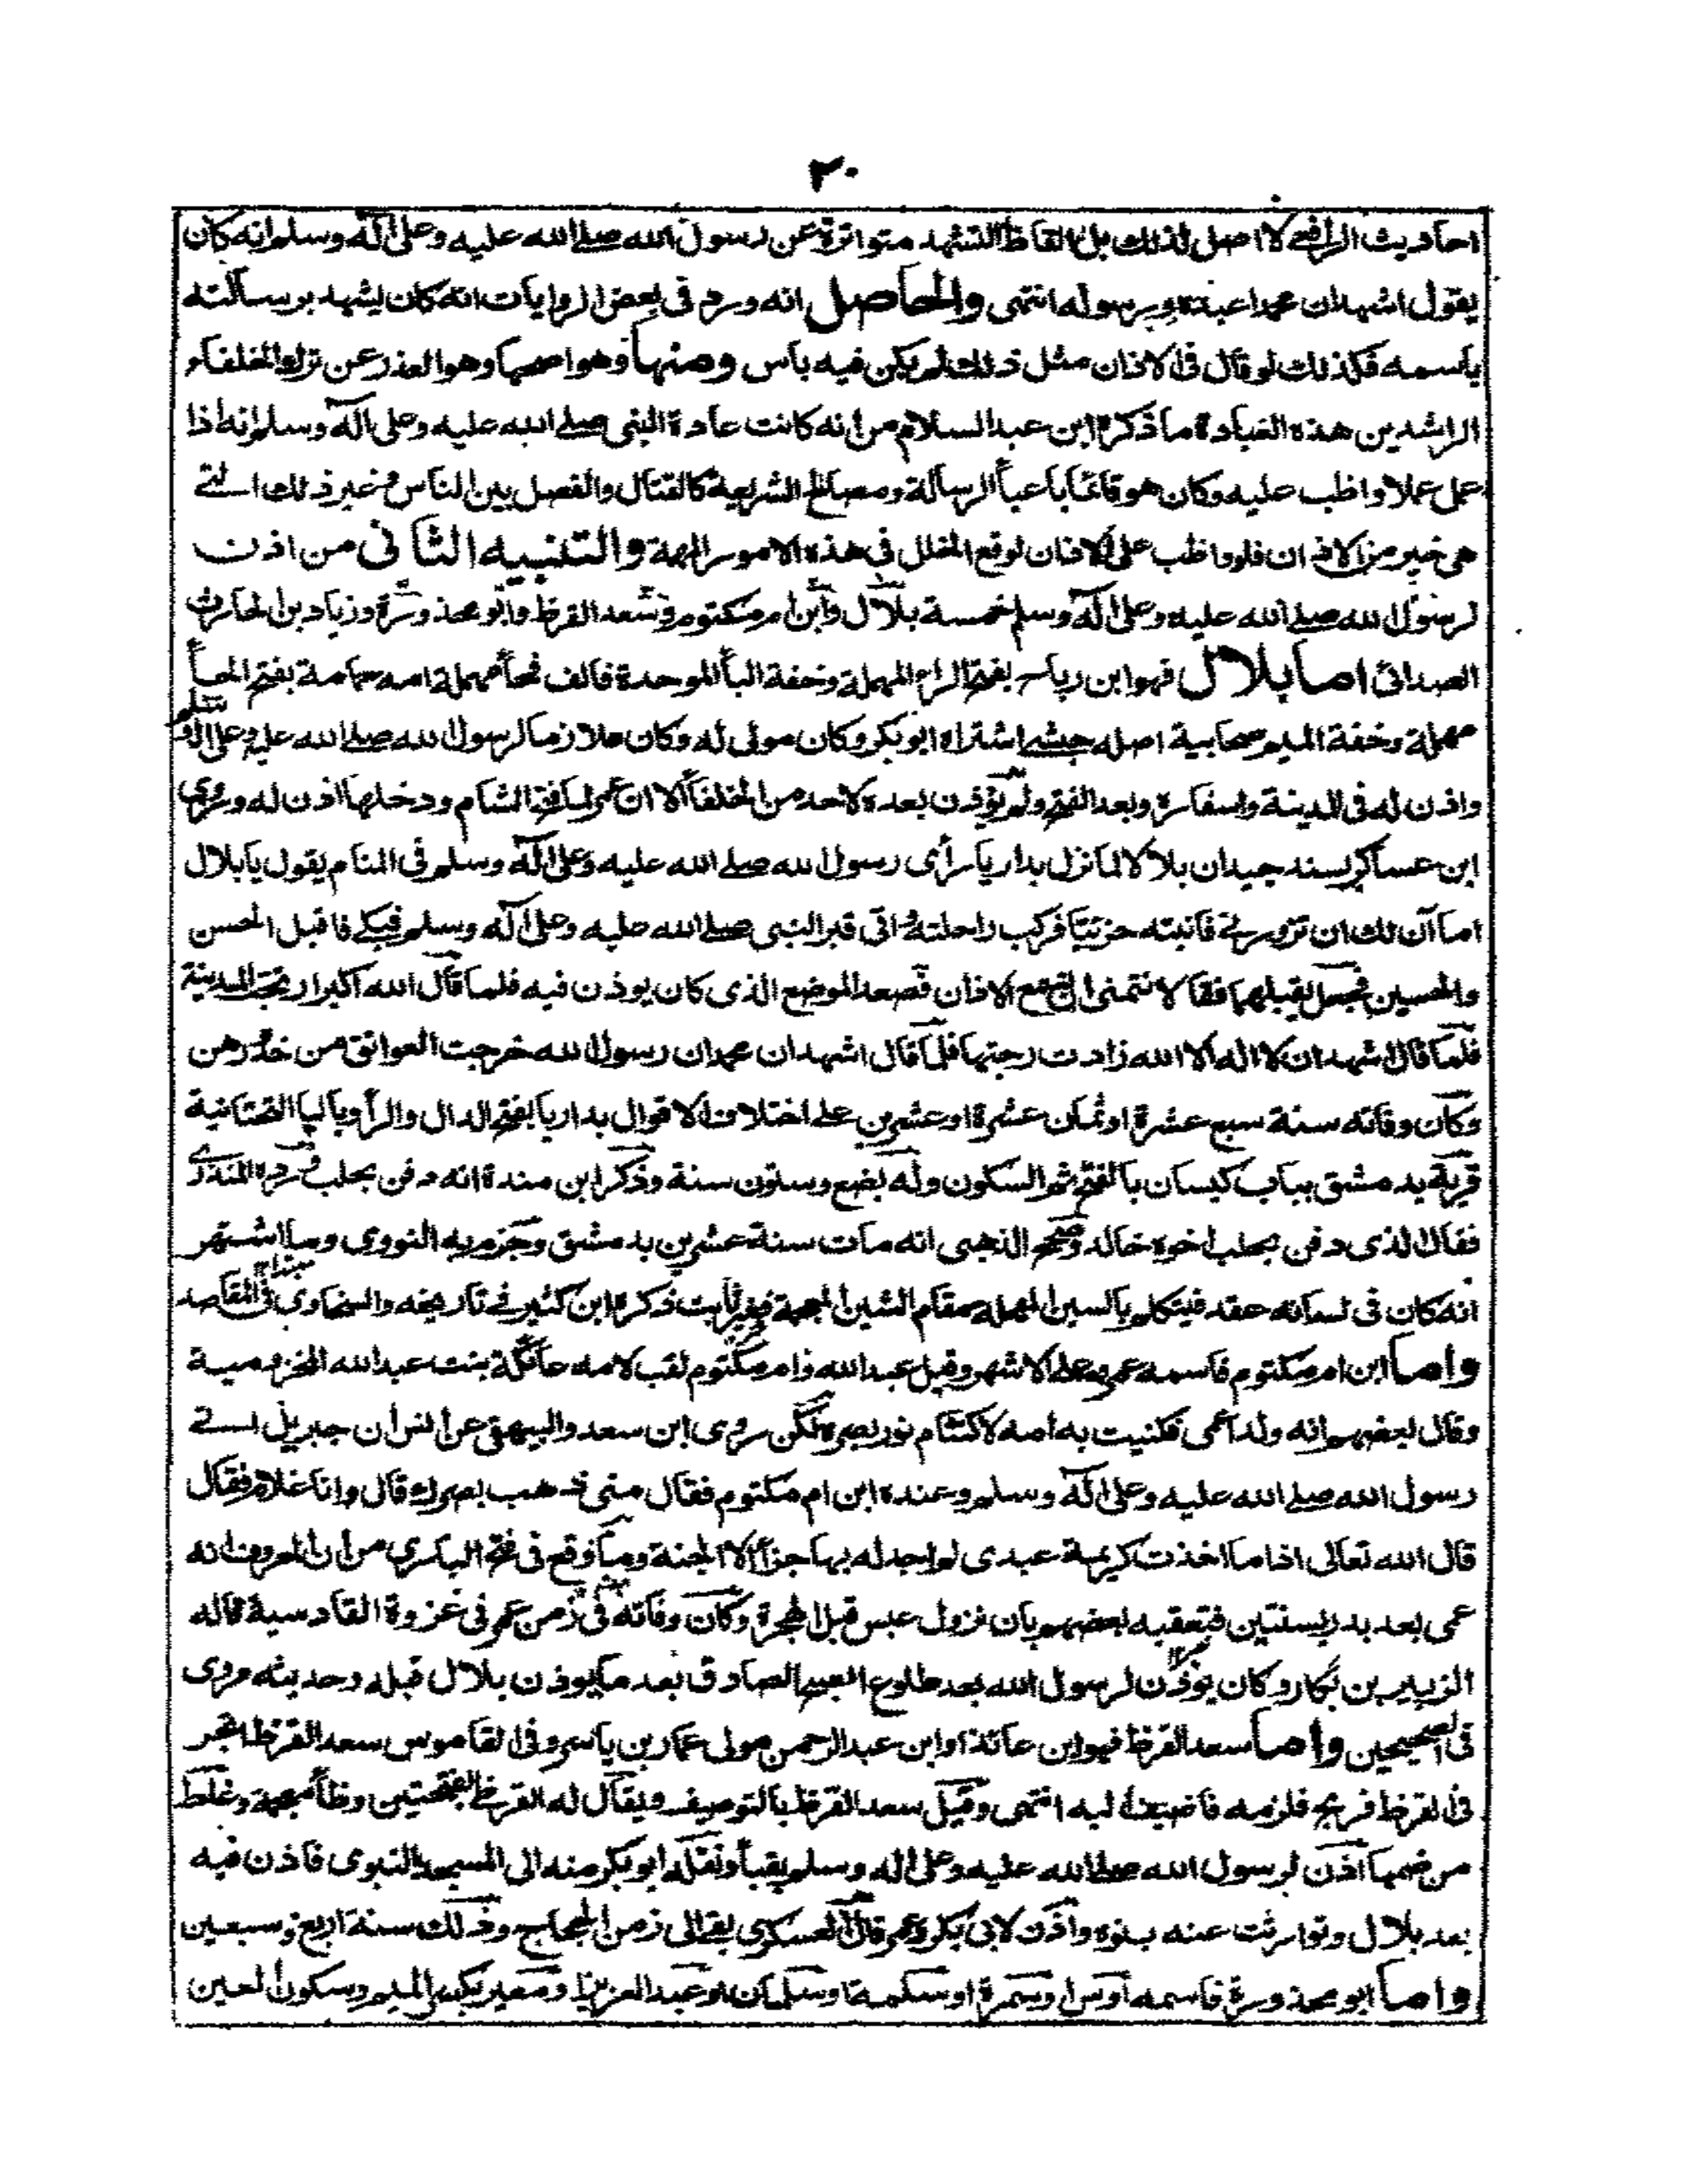 ٢٠
احاديث الرافعي لا اصل لذلك بل الفاظ التشهد متواترة عن رسول الله صلى الله عليه وعلى آله وسلم انه كان
يقول اشهد ان محمدا عبده ورسوله انتهى والحاصل انه ورد في بعض الروايات انه كان يشهد برسالته
باسمه فكذلك لو قال في الاذان مثل ذلك لم يكن فيه باس ومنها وهو اصحها وهو العذر عن ترك الخلفاء
الراشدين هذه العبادة ما ذكره ابن عبد السلام من انه كانت عادة النبي صلى الله عليه وعلى آله وسلم انه اذا
عمل عملا واظب عليه وكان هو قائما باعباء الرسالة ومصالح الشريعة كالقتال والفصل بين الناس وغير ذلك التي
هي خير من الاذان فلو واظب على الاذان لوقع الخلل في هذه الامور المهمة والتنبيه الثاني من اذن
لرسول الله صلى الله عليه وعلى آله وسلم خمسة بلال وابن ام مكتوم وسعد القرظ وابو محذورة وزياد بن الحارث
الصدائي اما بلال فهو ابن رباح بفتح الراء المهملة وخفة الباء الموحدة فالف فحاء مهملة امه حمامة بفتح الحاء
مهملة وخفة الميم صحابية اصله حبشي اشتراه ابو بكر وكان مولى له وكان ملازما لرسول الله صلى الله عليه وعلى آله وسلم
واذن له في المدينة واسفاره وبعد الفتح ولم يؤذن بعده لاحد من الخلفاء الا ان عمر لما فتح الشام ودخلها اذن له وروى
ابن عساكر بسند جيد ان بلالا لما نزل بداريا رأى رسول الله صلى الله عليه وعلى آله وسلم في المنام يقول يا بلال
اما آن لك ان تزورني فانتبه حزينا فركب راحلته واتى قبر النبي صلى الله عليه وعلى آله وسلم فبكى فاقبل الحسن
والحسين فجعل يقبلهما فقالا نتمنى ان نسمع الاذان فصعد الموضع الذي كان يوذن فيه فلما قال الله اكبر ارتجت المدينة
فلما قال اشهد ان لا اله الا الله زادت رجتها فلما قال اشهد ان محمدا رسول الله خرجت العواتق من خدرهن
وكان وفاته سنة سبع عشرة او ثمان عشرة او عشرين على اختلاف الاقوال بداريا بفتح الدال والراء وبالياء التحتانية
قرية بدمشق بباب كيسان بالفتح ثم السكون وله بضع وستون سنة وذكر ابن مندة انه دفن بحلب ورده المنذري
فقال الذي دفن بحلب اخوه خالد وصحح الذهبي انه مات سنة عشرين بدمشق وجزم به النووي وما اشتهر
انه كان في لسانه عقد فيتكلم بالسين المهملة مقام الشين المعجمة فغير ثابت ذكره ابن كثير في تاريخه والسخاوي في المقاصد
واما ابن ام مكتوم فاسمه عمرو على الاشهر وقيل عبد الله وام مكتوم لقب لامه عاتكة بنت عبد الله المخزومية
وقال بعضهم انه ولد اعمى فكنيت به امه لاكتتام نور بصره لكن روى ابن سعد والبيهقي عن انس ان جبريل اتى
رسول الله صلى الله عليه وعلى آله وسلم وعنده ابن ام مكتوم فقال متى ذهب بصرك قال وانا غلام فقال
قال الله تعالى اذا ما اخذت كريمة عبدي لم اجد له بها جزاء الا الجنة وما وقع في فتح الباري من ان المعروف انه
عمى بعد بدر بسنتين فتعقبه بعضهم بان نزول عبس قبل الهجرة وكان وفاته في زمن عمر في غزوة القادسية قاله
الزبير بن بكار وكان يوذن لرسول الله بعد طلوع الصبح الصادق بعد ما يوذن بلال قبله وحديثه مروي
في الصحيحين واما سعد القرظ فهو ابن عائذ او ابن عبد الرحمن مولى عمار بن ياسر وفي القاموس سعد القرظ اتجر
في القرظ فربح فلزمه فاضيف اليه انتهى وقيل سعد القرظ بالتوصيف ويقال له القرظ بفتحتين وظاء معجمة وغلط
من ضمها اذن لرسول الله صلى الله عليه وعلى اله وسلم بقباء ونقله ابو بكر منه الى المسجد النبوي فاذن فيه
بعد بلال وتوارثت عنه بنوه واذن لابي بكر وعمر قال العسكري بقي الى زمن الحجاج وذلك سنة اربع وسبعين
واما ابو محذورة فاسمه اوس او سمرة او سلمة او سلمان او عبد العزيز ومعير بكسر الميم وسكون العين